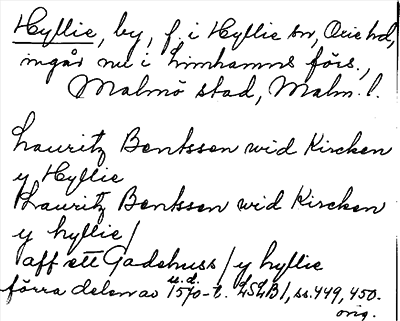 Hyllie, by, f. i Hyllie sn, Oxie hd,
ingår nu i Limhamns förs.,
Malmö stad, Malm. l.
Lauritz Bentssen wid Kircken
y Hyllie
Lauritz Bentssen wid Kircken
y hyllie /
aff ett Gadehuss / y hyllie
u.d.
förra delen av 1570-t. LSLB 1, ss. 449, 450.
orig.